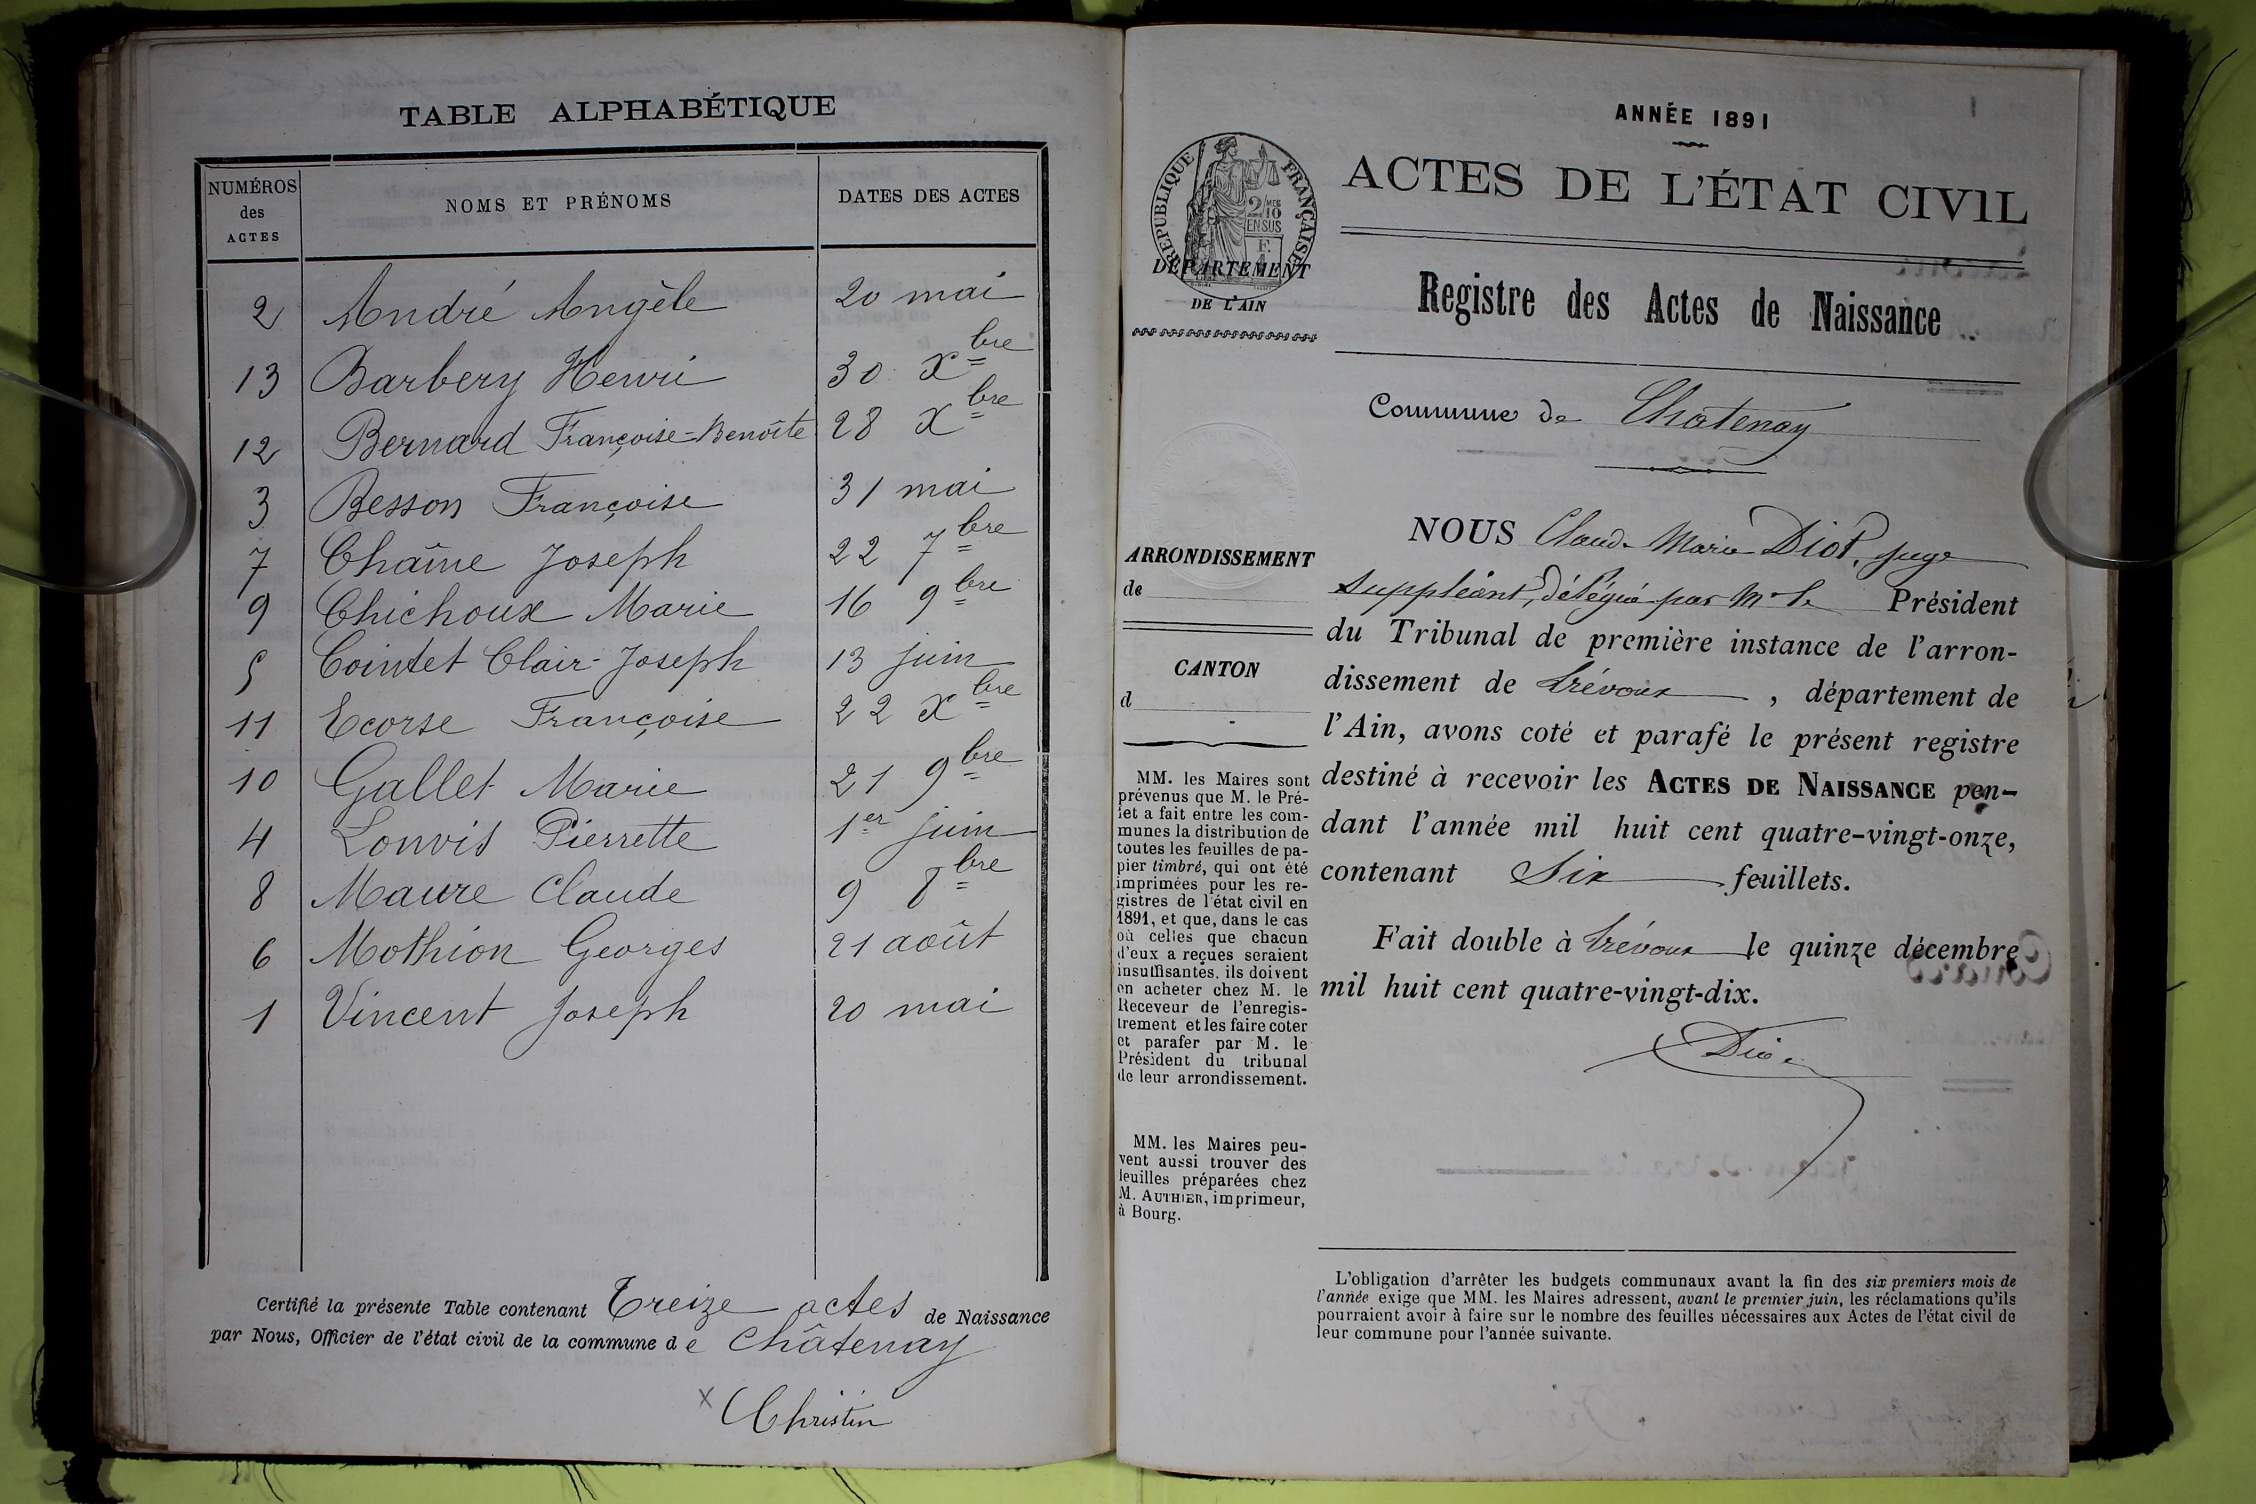 TABLE ALPHABÉTIQUE
NUMÉROS des ACTES
NOMS ET PRÉNOMS
DATES DES ACTES
2 André Angèle 20 mai
13 Barbery Henri 30 Xbre
12 Bernard Françoise=Benoîte 28 Xbre
3 Besson Françoise 31 mai
7 Chaîne Joseph 22 7bre
9 Chichoux Marie 16 9bre
5 Cointet Clair-Joseph 13 juin
11 Ecorse Françoise 22 Xbre
10 Gallet Marie 21 9bre
4 Lonvis Pierrette 1er juin
8 Maure Claude 9 8bre
6 Mothion Georges 21 août
1 Vincent Joseph 20 mai
Certifié la présente Table contenant Treize actes de Naissance
par Nous, Officier de l'état civil de la commune de Châtenay
x Christin
ANNÉE 1891
RÉPUBLIQUE FRANÇAISE
2/10 MES
EN SUS
ACTES DE L'ÉTAT CIVIL
DÉPARTEMENT
DE L'AIN
Registre des Actes de Naissance
Commune de Chatenay
ARRONDISSEMENT
de
CANTON
d
MM. les Maires sont
prévenus que M. le Pré-
fet a fait entre les com-
munes la distribution de
toutes les feuilles de pa-
pier timbré, qui ont été
imprimées pour les re-
gistres de l'état civil en
1891, et que, dans le cas
où celles que chacun
d'eux a reçues seraient
insuffisantes, ils doivent
en acheter chez M. le
Receveur de l'enregis-
trement et les faire coter
et parafer par M. le
Président du tribunal
de leur arrondissement.
MM. les Maires peu-
vent aussi trouver des
feuilles préparées chez
M. AUTHIER, imprimeur,
à Bourg.
NOUS Claude Marie Diot, juge
suppléant, délégué par Mr le Président
du Tribunal de première instance de l'arron-
dissement de Trévoux, département de
l'Ain, avons coté et parafé le présent registre
destiné à recevoir les ACTES DE NAISSANCE pen-
dant l'année mil huit cent quatre-vingt-onze,
contenant Six feuillets.
Fait double à Trévoux le quinze décembre
mil huit cent quatre-vingt-dix.
Diot
L'obligation d'arrêter les budgets communaux avant la fin des six premiers mois de
l'année exige que MM. les Maires adressent, avant le premier juin, les réclamations qu'ils
pourraient avoir à faire sur le nombre des feuilles nécessaires aux Actes de l'état civil de
leur commune pour l'année suivante.